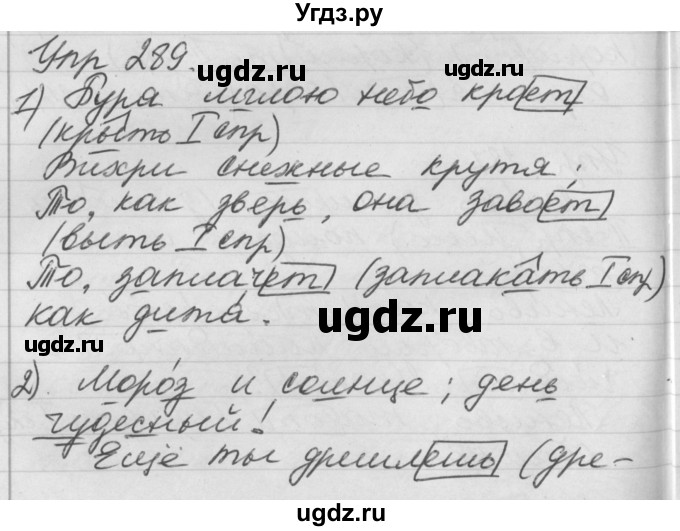 Угдз.ру
Упр 289.
1) Буря мглою небо кроет
(крыть I спр)
Вихри снежные крутя;
То, как зверь, она завоет
(выть I спр)
То, заплачет (заплакать I спр)
как дитя.
2) Мороз и солнце; день
чудесный!
Ещё ты дремлешь (дре-
ugdz.ru
ugdz.ru
ugdz.ru
ugdz.ru
ugdz.ru
ugdz.ru
ugdz.ru